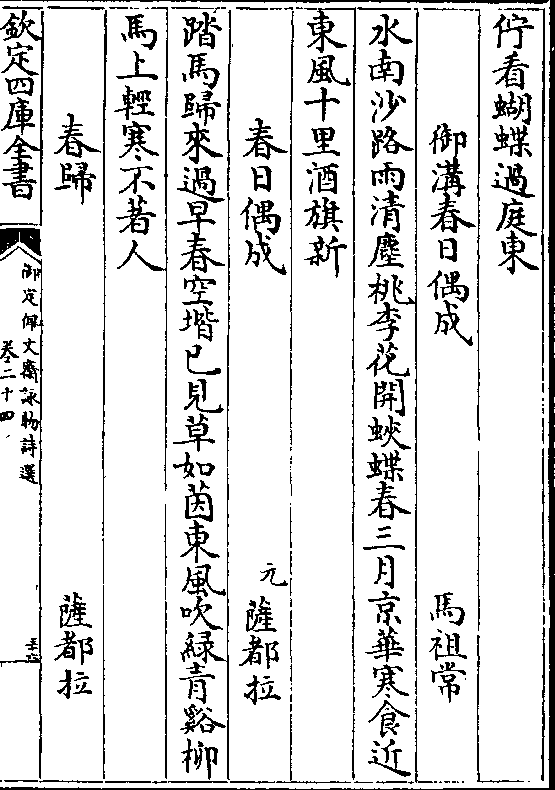 佇看蝴蝶過庭東
御溝春日偶成 馬祖常
水南沙路雨清塵桃李花開蛺蝶春三月京華寒食近
東風十里酒旗新
春日偶成 元 薩都拉
踏馬歸來過早春空堦已見草如茵東風吹緑青谿柳
馬上輕寒不著人
春歸 薩都拉
欽定四庫全書
御定佩文齋詠物詩選
卷二十四